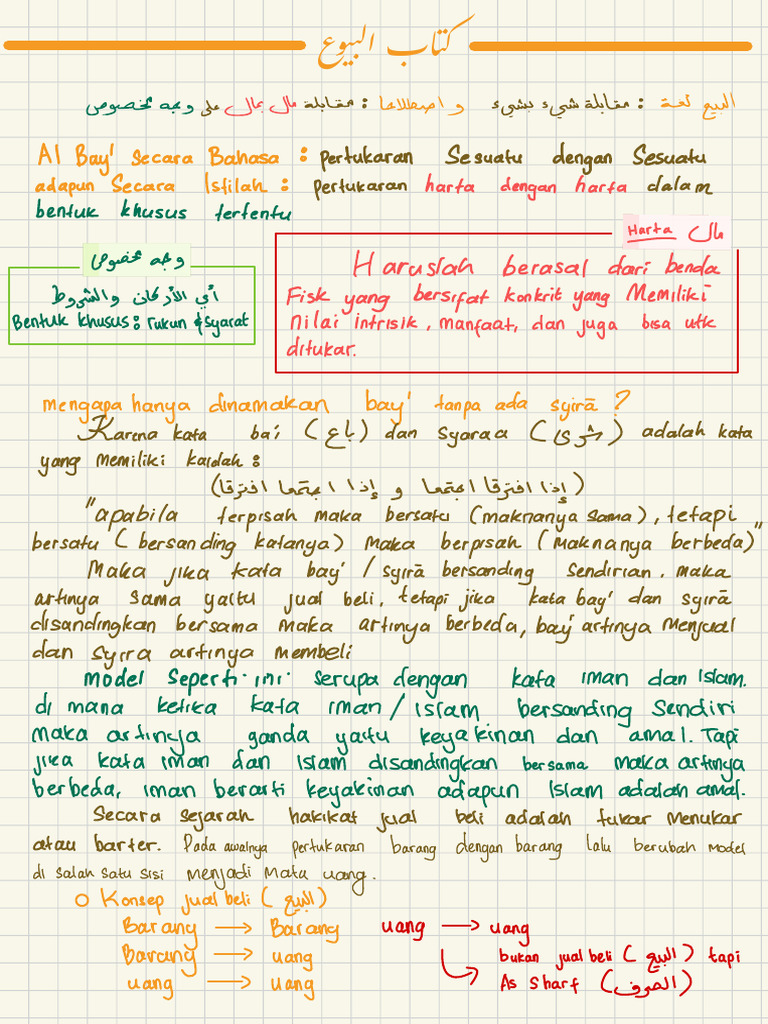 كتاب البيوع
البيع لغة : مقابلة شيء بشيء واصطلاحا : مقابلة مال بمال على وجه مخصوص
Al Bay' secara Bahasa : pertukaran Sesuatu dengan Sesuatu
adapun Secara Istilah : pertukaran harta dengan harta dalam
bentuk khusus tertentu
وجه مخصوص
أي الأركان والشروط
Bentuk khusus : rukun & syarat
Harta مال
Haruslah berasal dari benda
Fisk yang bersifat konkrit yang Memiliki
nilai intrisik, manfaat, dan juga bisa utk
ditukar.
mengapa hanya dinamakan bay' tanpa ada syirā ?
Karena kata ba'i (باع) dan syaraa (شرى) adalah kata
yang memiliki kaidah :
(إذا افترقا اجتمعا و إذا اجتمعا افترقا)
"apabila terpisah maka bersatu (maknanya sama), tetapi
bersatu (bersanding katanya) maka berpisah (maknanya berbeda)"
Maka jika kata bay' / syirā bersanding sendirian. maka
artinya sama yaitu jual beli, tetapi jika kata bay' dan syirā
disandingkan bersama maka artinya berbeda, bay' artinya menjual
dan syirra artinya membeli
model seperti ini serupa dengan kata iman dan islam.
di mana ketika kata iman/islam bersanding sendiri
maka artinya ganda yaitu keyakinan dan amal. Tapi
jika kata iman dan islam disandingkan bersama maka artinya
berbeda, iman berarti keyakinan adapun Islam adalah amal.
Secara sejarah hakikat jual beli adalah tukar menukar
atau barter. Pada awalnya pertukaran barang dengan barang lalu berubah model
di salah satu sisi menjadi Mata uang.
Konsep jual beli (البيع)
Barang → Barang
Barang → uang
uang → uang
uang → uang
bukan jual beli (البيع) tapi
As Sharf (الصرف)